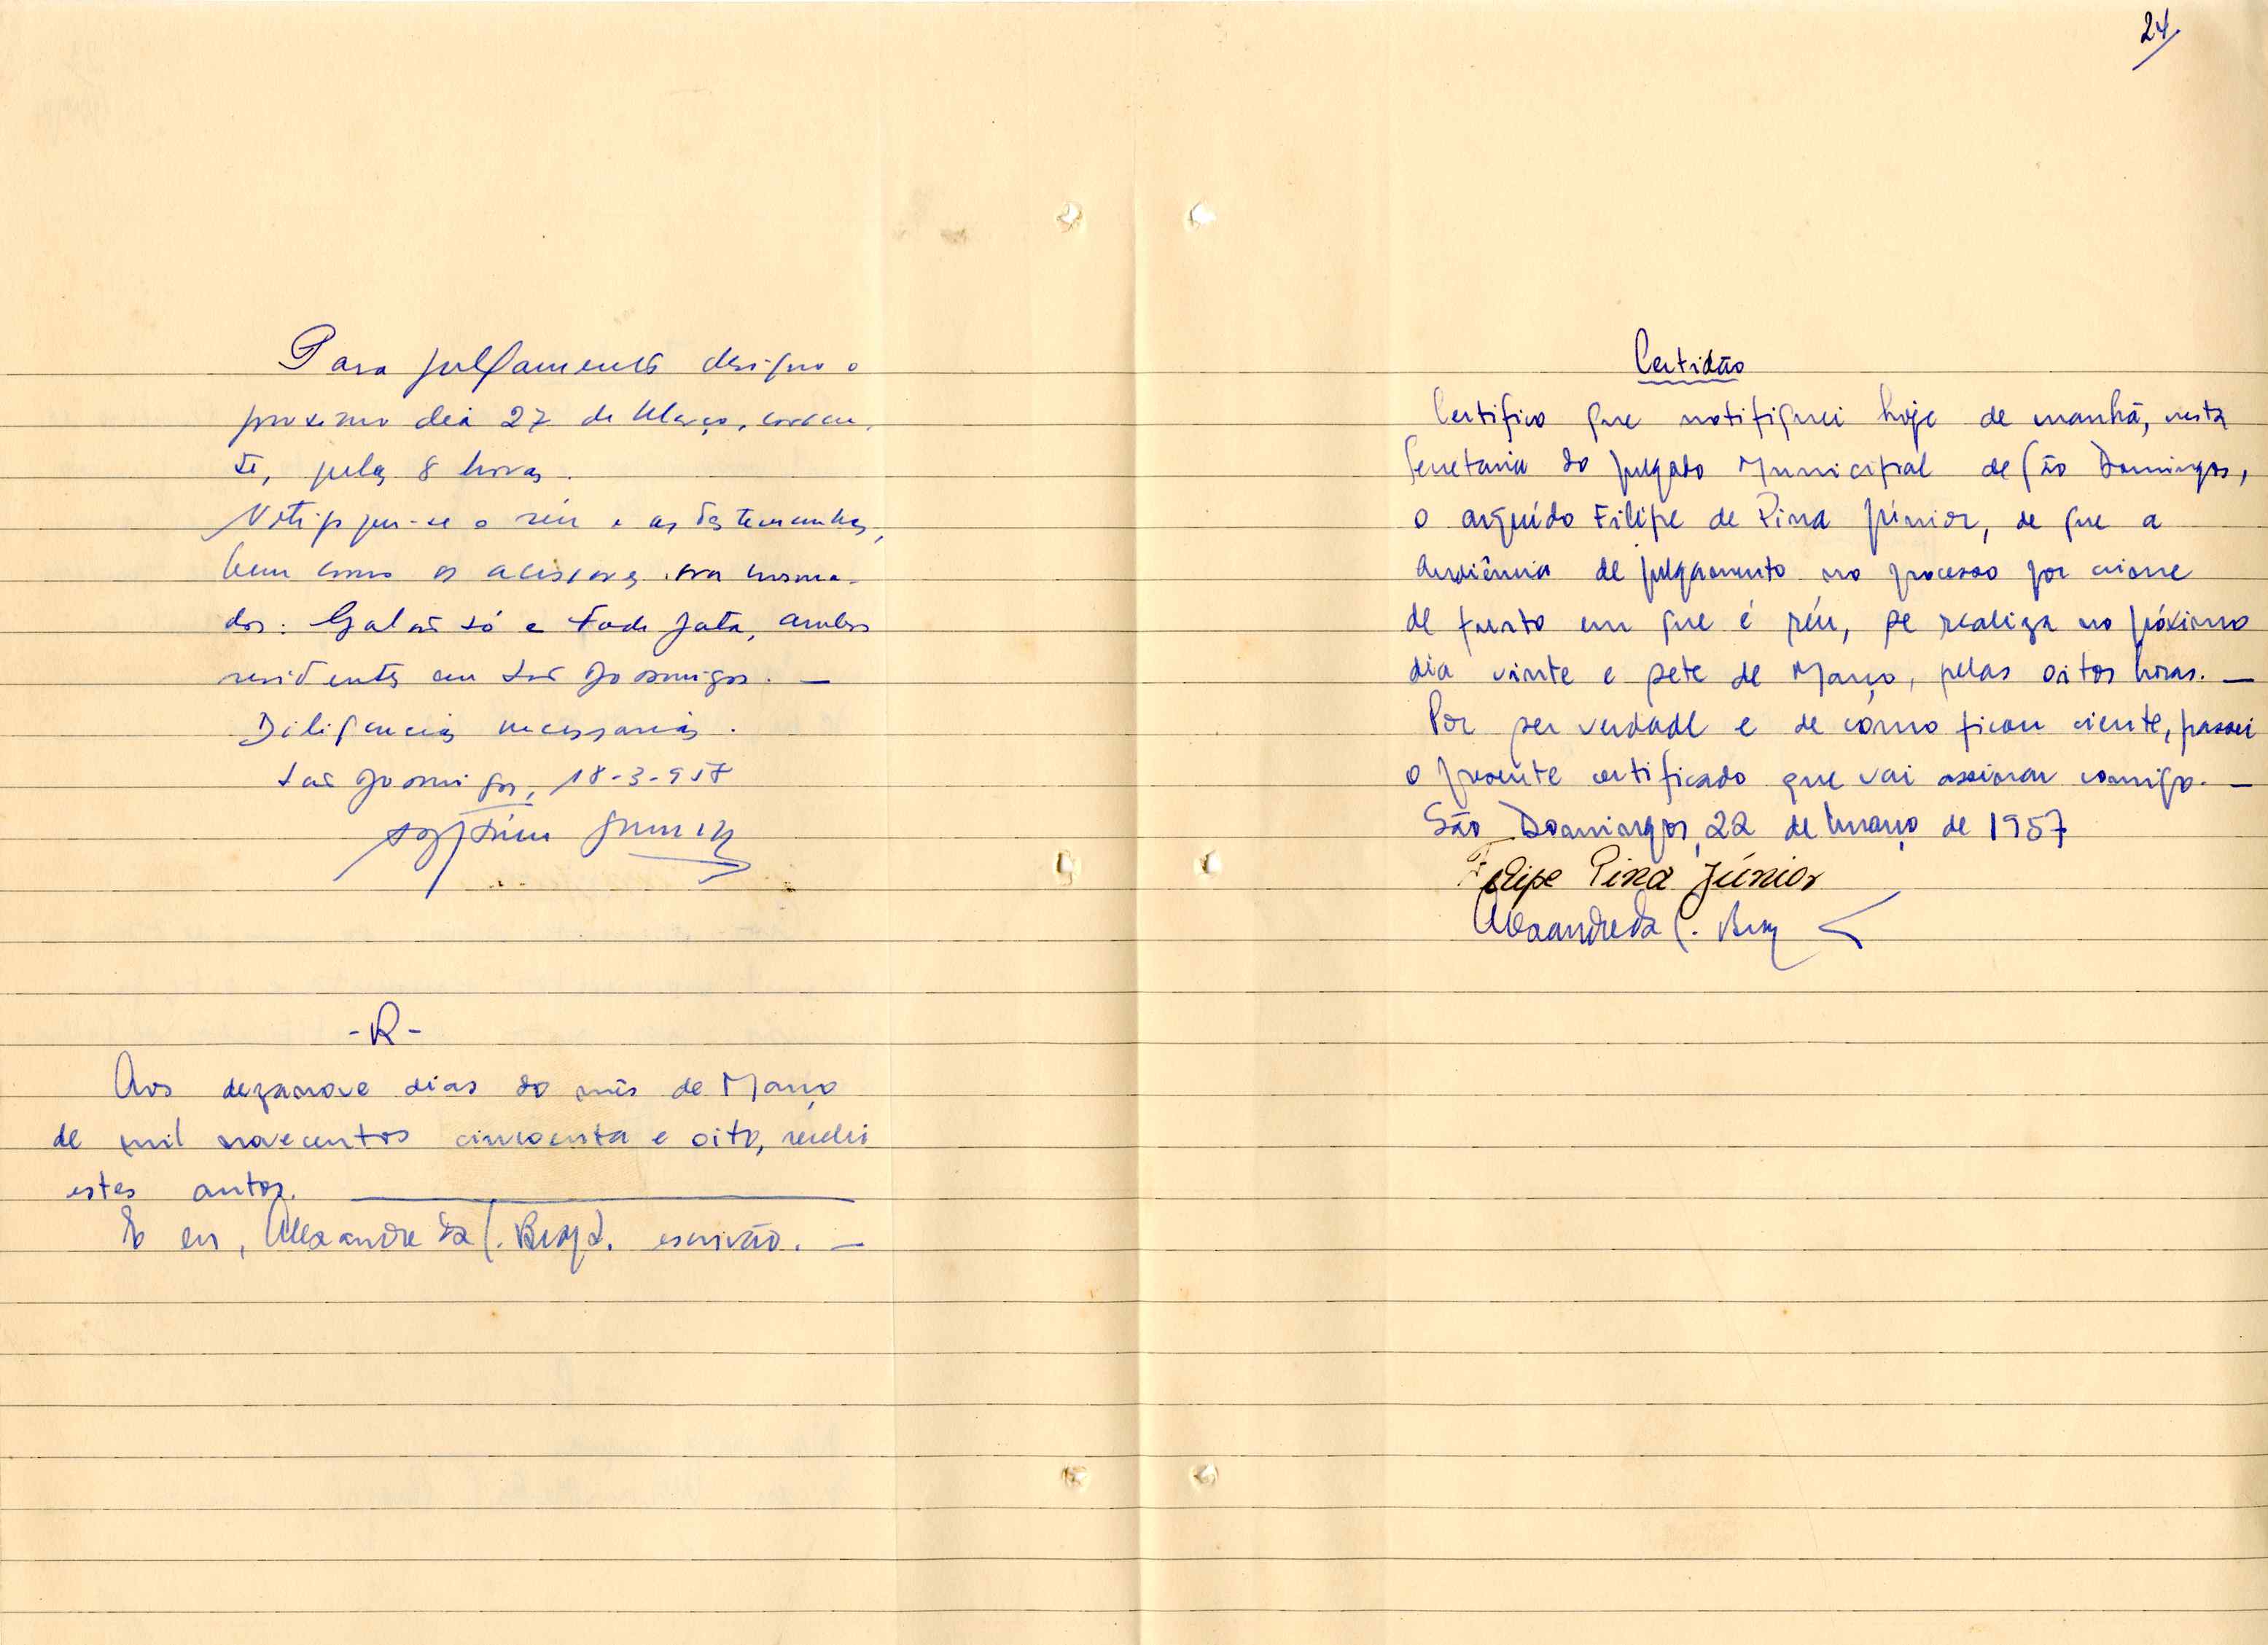 Para julgamento designo o
proximo dia 27 de Março, corren-
te, pelas 8 horas.
Notifique-se o réu e as testemunhas,
bem como os acessores, nomea-
dos: Galão Só e Fode Jata, ambos
residentes em São Domingos. —
Diligencias necessarias.
São Domingos, 18-3-957
- R -
Aos dezanove dias do mês de Março
de mil novecentos cincoenta e oito, recebi
estes autos.
E eu, Alexandre da C. escrivão. —
24
Certidão
Certifico que notifiquei hoje de manhã, nesta
Secretaria do Julgado Municipal de São Domingos,
o arguído Filipe de Pina Júnior, de que a
audiência de julgamento no processo por crime
de furto em que é réu, se realiza no próximo
dia vinte e sete de Março, pelas oitos horas. —
Por ser verdade e de como ficou ciente, passei
o presente certificado que vai assinar comigo. —
São Domingos, 22 de Março de 1957
Felipe Pina Júnior
Alexandre da C.